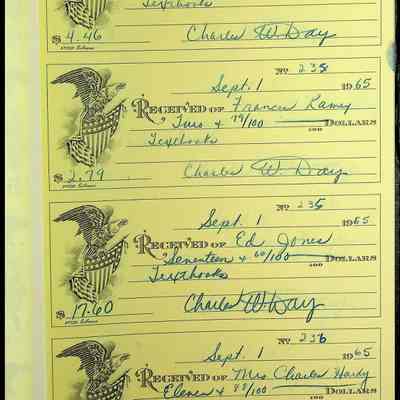 Textbooks
$ 4.46 Charles W. Day
No 235
Sept. 1 1965
RECEIVED OF Francis Ramey
Two & 79/100 DOLLARS
100
Textbooks
$ 2.79 Charles W. Day
No 235
Sept. 1 1965
RECEIVED OF Ed Jones
Seventeen & 60/100 DOLLARS
100
Textbooks
$ 17.60 Charles W. Day
No 236
Sept. 1 1965
RECEIVED OF Mrs Charles Hardy
Eleven & /100 DOLLARS
100